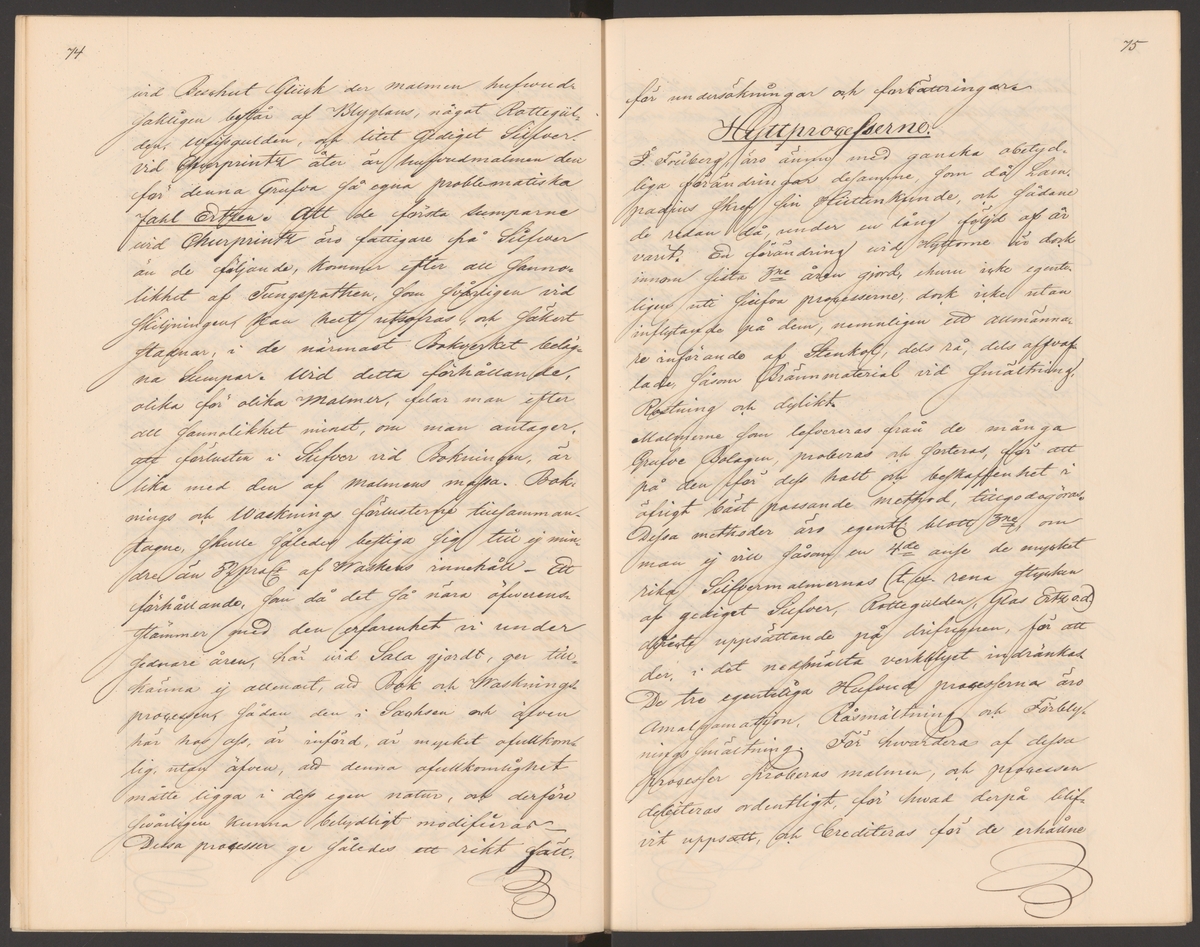 74
vid Beschert Glück der malmen hufvud-
sakligen består af Blyglans, något Rottegül-
den, Weissgulden, och litet Gediget Silfver.
vid Churprintz åter är hufvudmalmen den
för denna Grufva så egna problematiska
Fahl Ertzen. Att de första sumparne
vid Churprintz äro fattigare på Silfver
än de följande, kommer efter all sanno-
likhet af Tungspathen, som svårligen vid
skiljningen, kan helt utsofras, och säkert
stadnar, i de närmast Bokverket beläg-
na Sumpar. Vid detta förhållande,
olika för olika Malmer, felar man efter
all sannolikhet minst, om man antager,
att förlusten i Silfver vid Bokningen, är
lika med den af malmens massa. Bok-
nings och Wasknings förlusterne tillsamman-
tagne, skulle således bestiga sig till ej min-
dre än af Waskens innehåll – Ett
förhållande, som då det så nära öfverens-
stämmer med den erfarenhet vi under
sednare åren, här vid Sala gjordt, ger till-
känna ej allenast, att Bok och Wasknings-
processen, sådan den i Sachsen och äfven
här hos oss, är införd, är mycket ofullkom-
lig, utan äfven, att denna ofullkomlighet
måtte ligga i dess egen natur, och derföre
svårligen kunna betydligt modifieras –
Dessa processer ge således ett rikt fält,
75
för undersökningar och förbättringar.
Hyttprocesserne.
I Freiberg, äro ännu med ganska obetyd-
liga förändringar desamme, som då Lam-
padius skref sin Hüttenkunde, och sådane
de redan då, under en lång följd af år
varit. En förändring vid Hyttorne är dock
innom sista 3ne åren gjord, ehuru icke egent-
ligen uti sielfva processerne, dock icke utan
inflytande på dem, nemnligen ett allmänna-
re införande af Stenkol, dels rå, dels afsvaf-
lade, såsom Brännmaterial vid smältning,
Rostning och dylikt.
Malmerne som lefvereras från de många
Grufve Bolagen, proberas och sorteras, för att
på den för dess halt och beskaffenhet i
öfrigt bäst passande method, tillgodogöras.
Dessa methoder äro egentl. blott 3ne, om
man ej vill såsom en 4de anse de mycket
rika Silfvermalmernas (t. ex. rena stycken
af gediget Silfver, Rottegülden, Glas Ertz o.d.)
directe uppsättande på drifugnen, för att
der, i det nedsmälta verkblyet indränkas
De tre egenteliga Hufvud processerna äro
Amalgamation, Råsmältning och Förbly-
nings smältning. För hvardera af dessa
processer proberas malmen, och processen
debiteras ordentligt, för hvad derpå blif-
vit uppsatt, och Crediteras för de erhållne